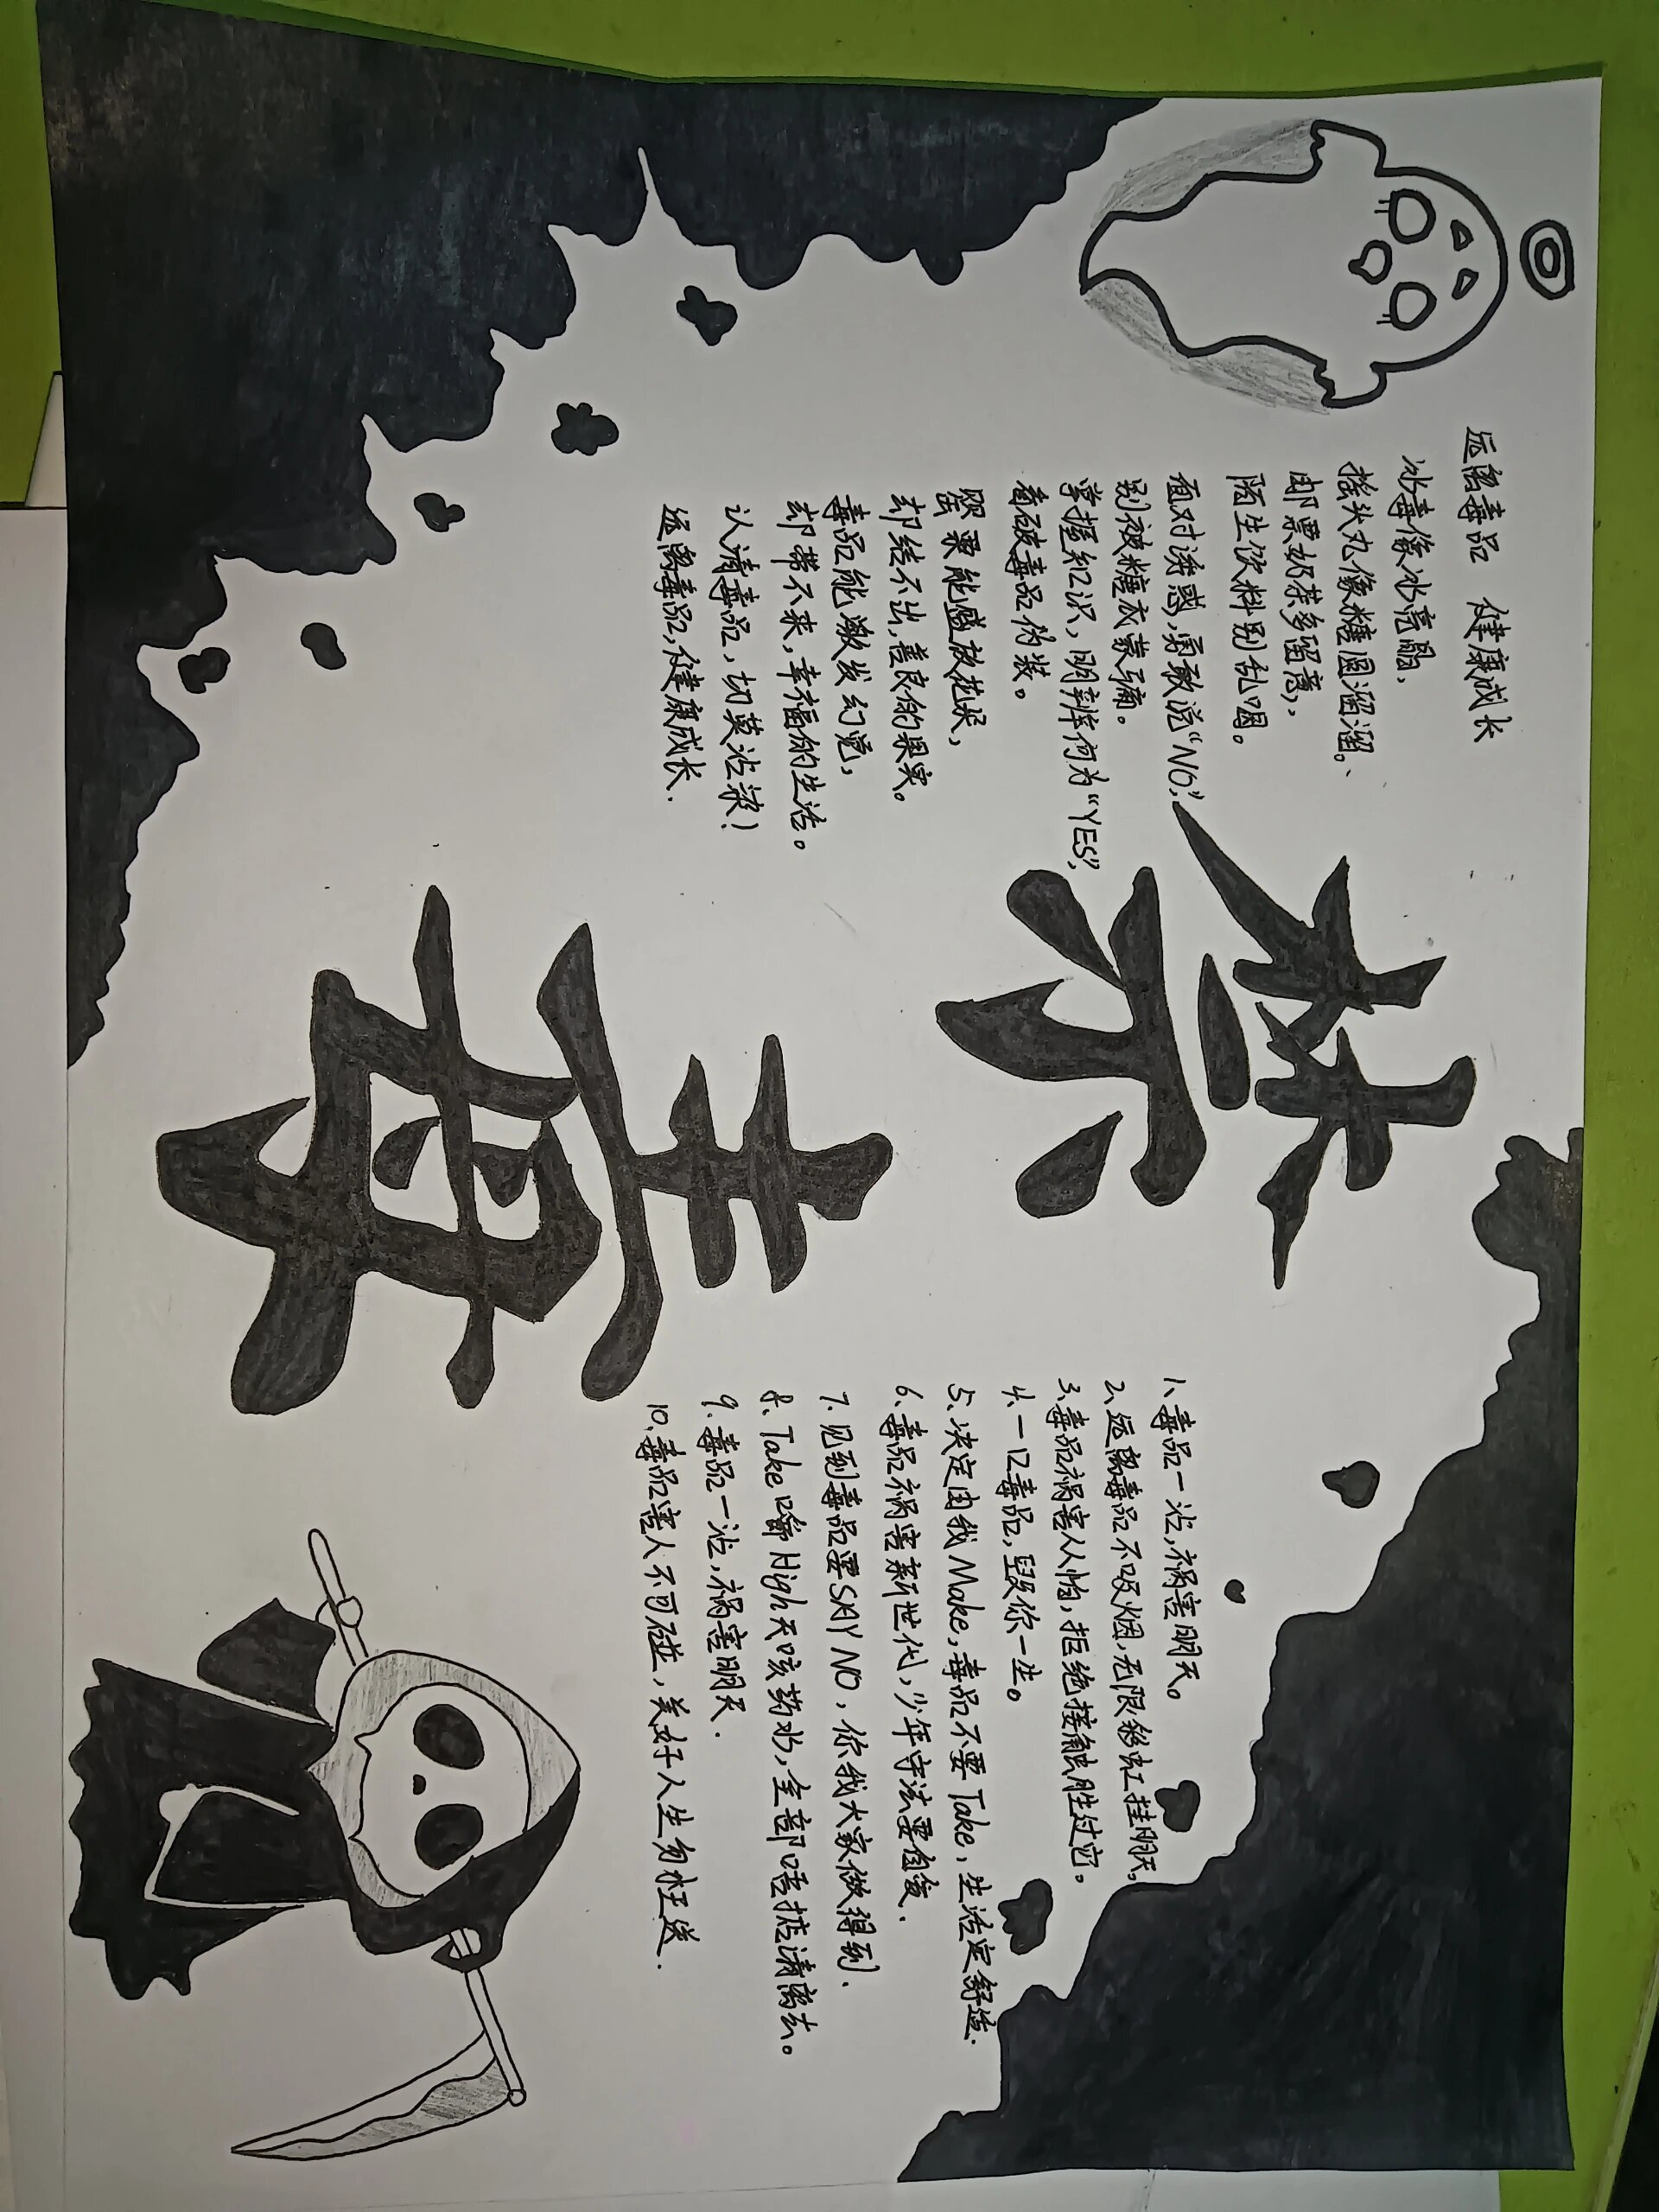 远离毒品 健康成长
冰毒像冰亮晶,
摇头丸像糖圆溜溜。
邮票奶茶多留意,
陌生饮料别乱喝。
面对诱惑,勇敢说“NO,”
别被糖衣蒙骗。
掌握知识,明辨何为“YES”,
看破毒品伪装。
罂粟能盛放花朵,
却结不出,善良的果实。
毒品能激发幻觉,
却带不来,幸福的生活。
认清毒品,切莫沾染!
远离毒品,健康成长.
禁
毒
1、毒品一沾,祸害明天。
2、远离毒品不吸烟,无限彩虹挂明天。
3、毒品祸害人人怕,拒绝接触胜过它。
4、一口毒品,毁你一生。
5、决定由我Make,毒品不要Take,生活定舒适.
6、毒品祸害新世代,少年守法要自爱.
7.见到毒品要SAY NO,你我大家做得到.
8、Take嘢High天咳药水,全部唔掂请离去。
9.毒品一沾,祸害明天.
10.毒品害人不可碰,美好人生勿枉送.